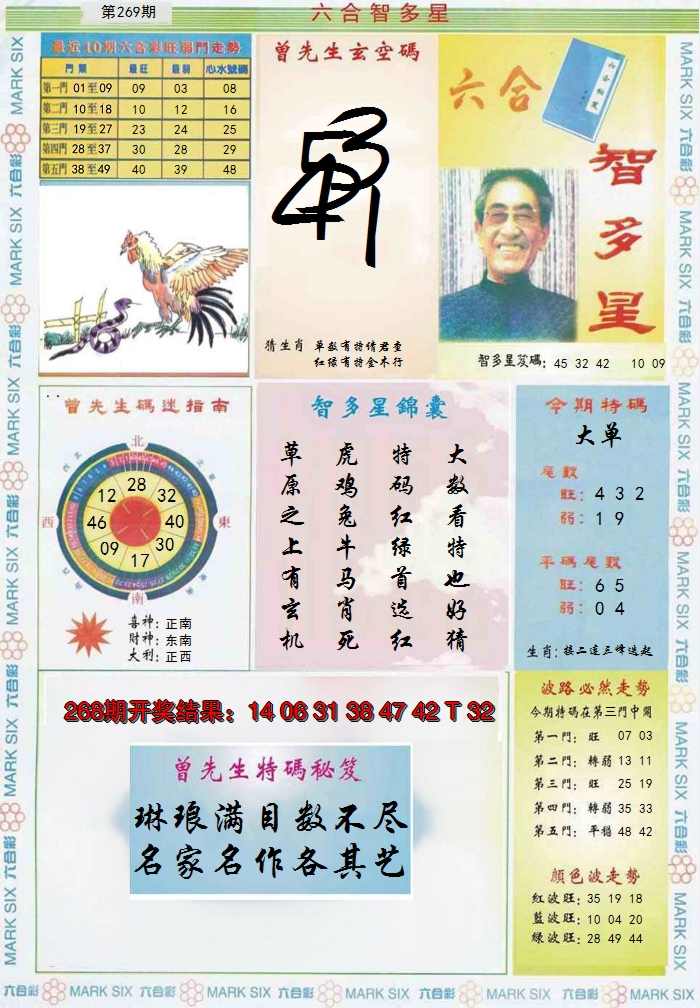 第269期
六合智多星
最近10期六合彩旺弱門走勢
門類 最旺 最弱 心水號碼
第一門 01至09 09 03 08
第二門 10至18 10 12 16
第三門 19至27 23 24 25
第四門 28至37 30 28 29
第五門 38至49 40 39 48
曾先生玄空碼
猜生肖 单数有特倩君查
红绿有特金木行
六合
智多星
智多星笈碼: 45 32 42 10 09
曾先生碼迷指南
北
西
東
南
28
12 32
46 40
09 30
17
喜神: 正南
财神: 东南
大利: 正西
智多星錦囊
大数看特也好猜
特码红绿首选红
虎鸡兔牛马肖死
草原之上有玄机
今期特碼
大单
尾數
旺: 4 3 2
弱: 1 9
平碼尾數
旺: 6 5
弱: 0 4
生肖: 接二连三峰迭起
268期开奖结果: 14 06 31 38 47 42 T 32
曾先生特碼秘笈
琳琅满目数不尽
名家名作各其艺
波路必然走勢
今期特碼在第三門中開
第一門: 旺 07 03
第二門: 轉弱 13 11
第三門: 旺 25 19
第四門: 轉弱 35 33
第五門: 平穩 48 42
顏色波走勢
紅波旺: 35 19 18
藍波旺: 10 04 20
綠波旺: 28 49 44
六合彩 MARK SIX 六合彩 MARK SIX 六合彩 MARK SIX 六合彩 MARK SIX 六合彩